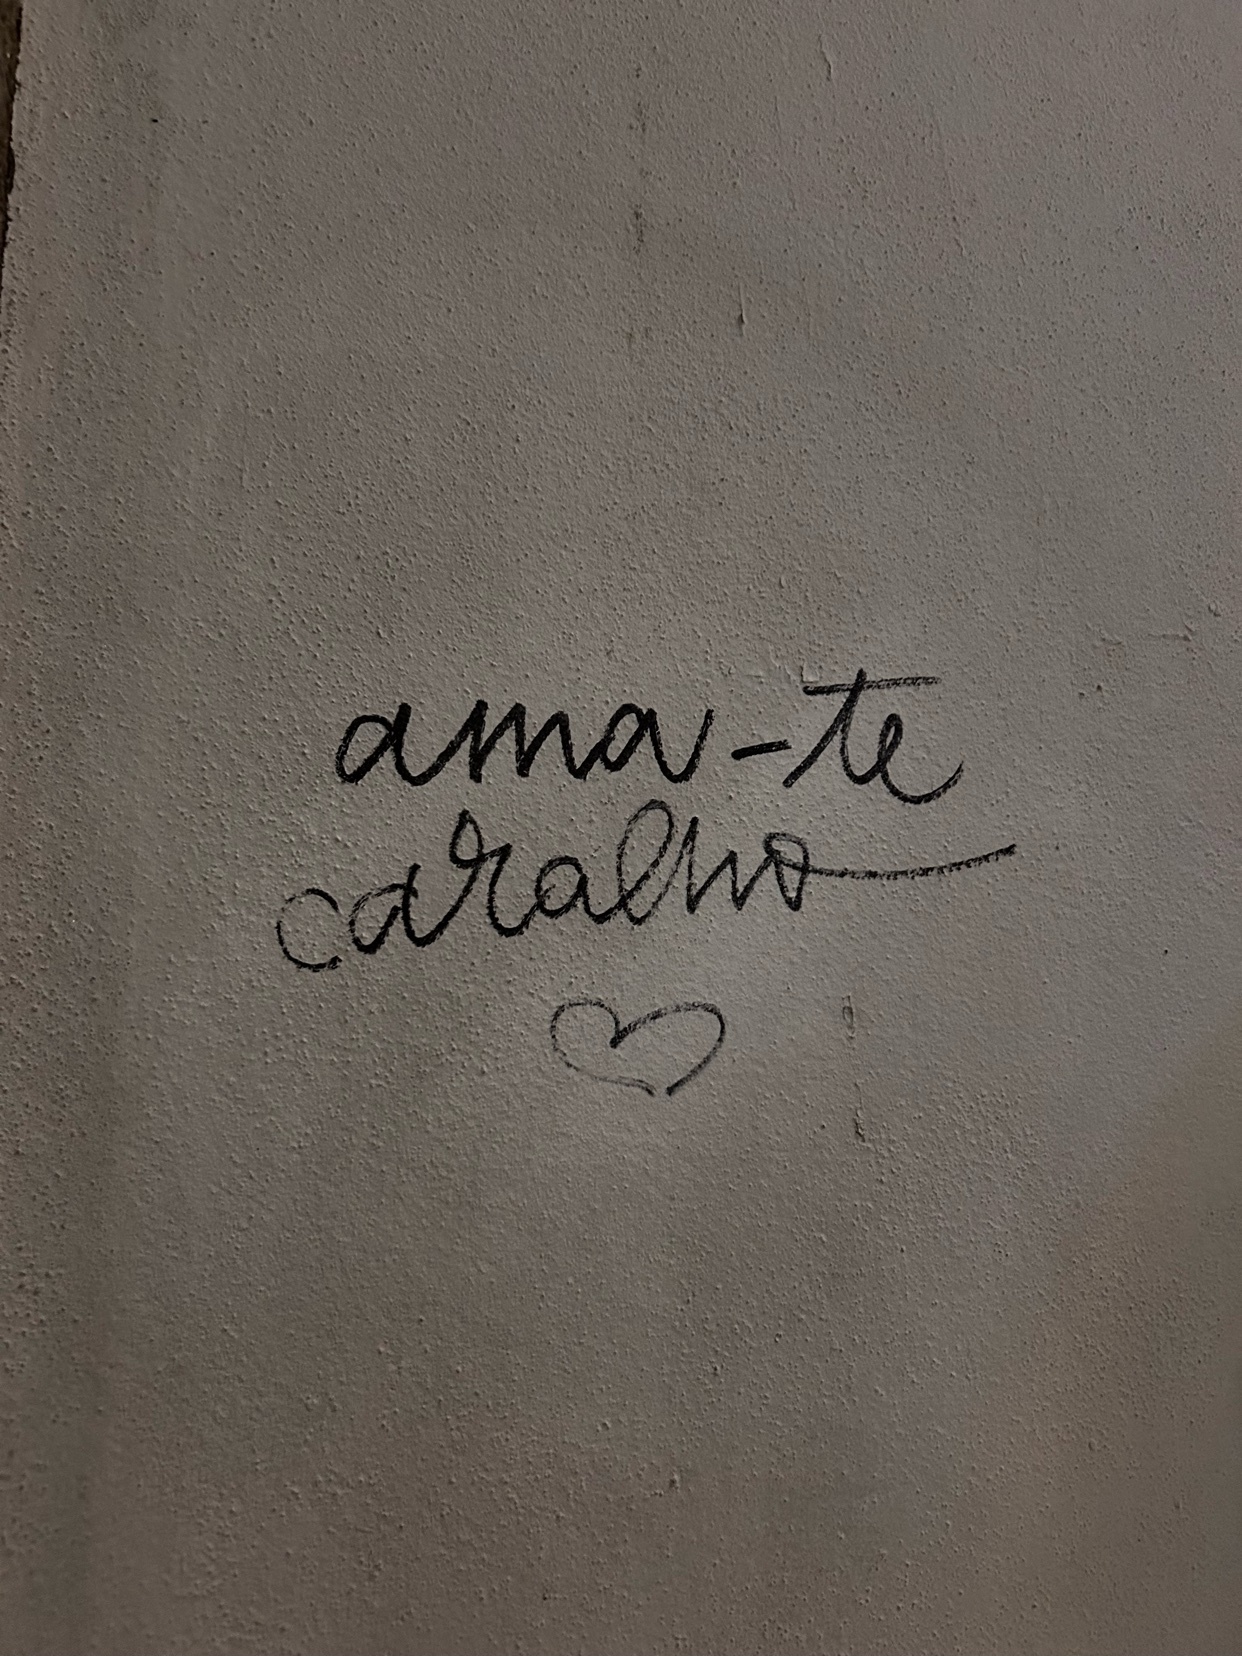 ama-te
caralho